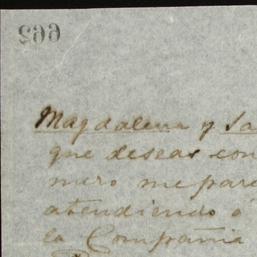 662
Magdalena y Sa
que deseas con
mero me pare
atendiendo ó
la Compañia